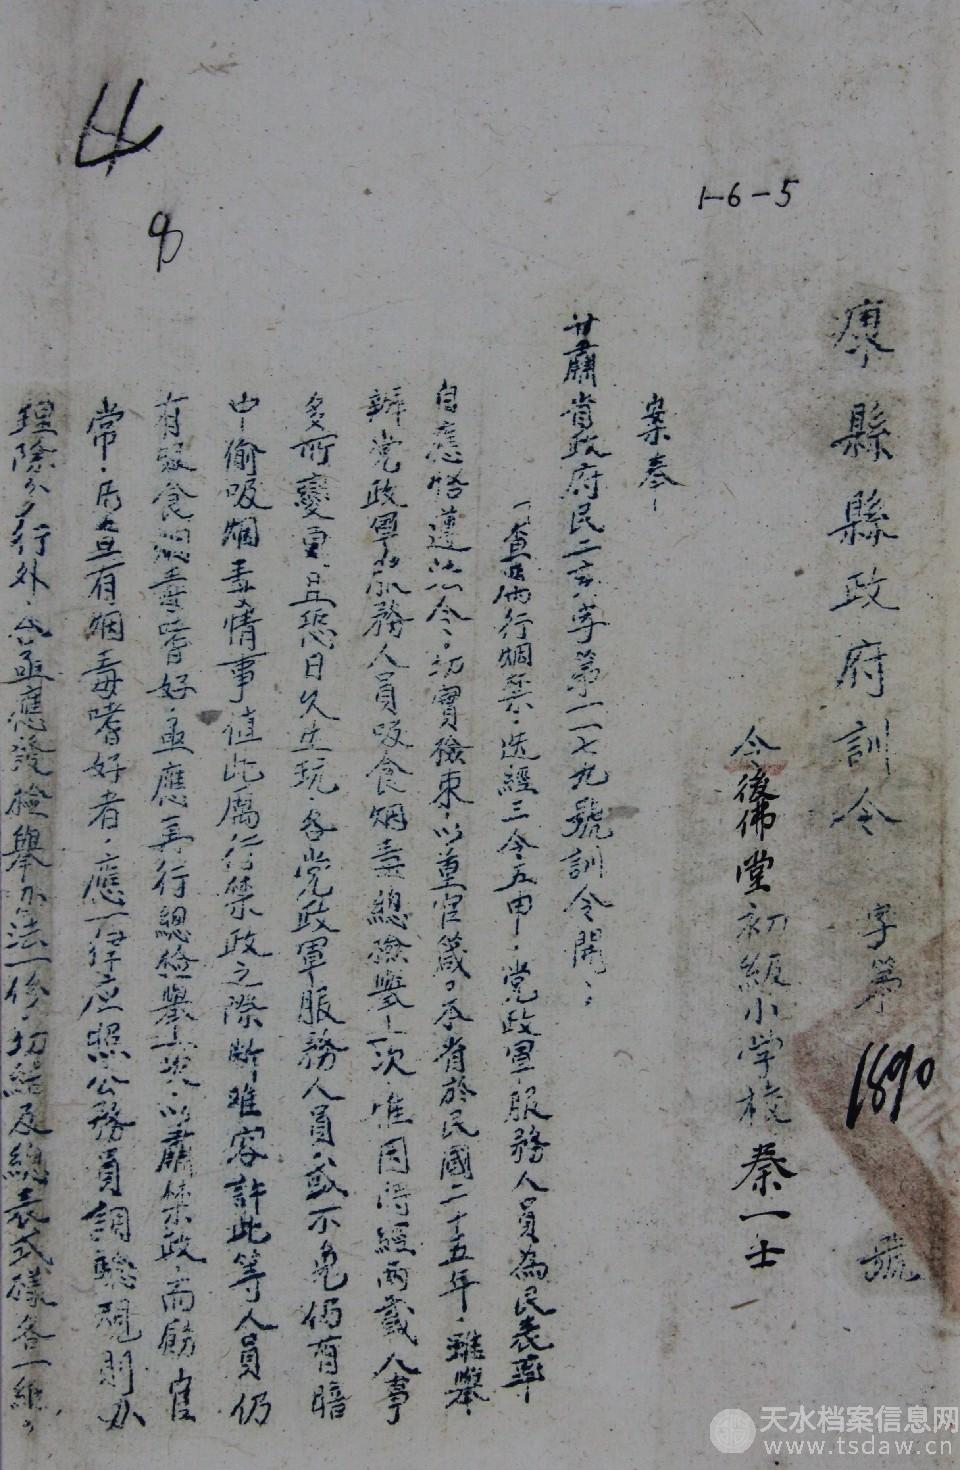 1-6-5
康縣縣政府訓令 字第 1890 號
令後佛堂初級小学校秦一士
案奉
甘肅省政府民二亥字第一一七九號訓令開：
「查厲行烟禁，迭經三令五申，党政軍服務人員為民表率
自應恪遵法令，切實檢束，以重官箴，本省於民國二十五年，雖舉
辦党政軍服務人員吸食烟毒總檢舉一次，惟因時經兩載人事
多所變更，且恐日久生玩，各党政軍服務人員或不免仍有暗
中偷吸烟毒情事值此厲行禁政之際断难容許此等人員仍
有吸食烟毒嗜好，亟應再行總檢舉一次，以肅禁政，而励官
常，凡查有烟毒嗜好者，應一律应照公務員調驗規則办
理除分行外，合亟應發檢舉办法一份，切結及總表式樣各一紙，
4
8
天水档案信息网
www.tsdaw.cn